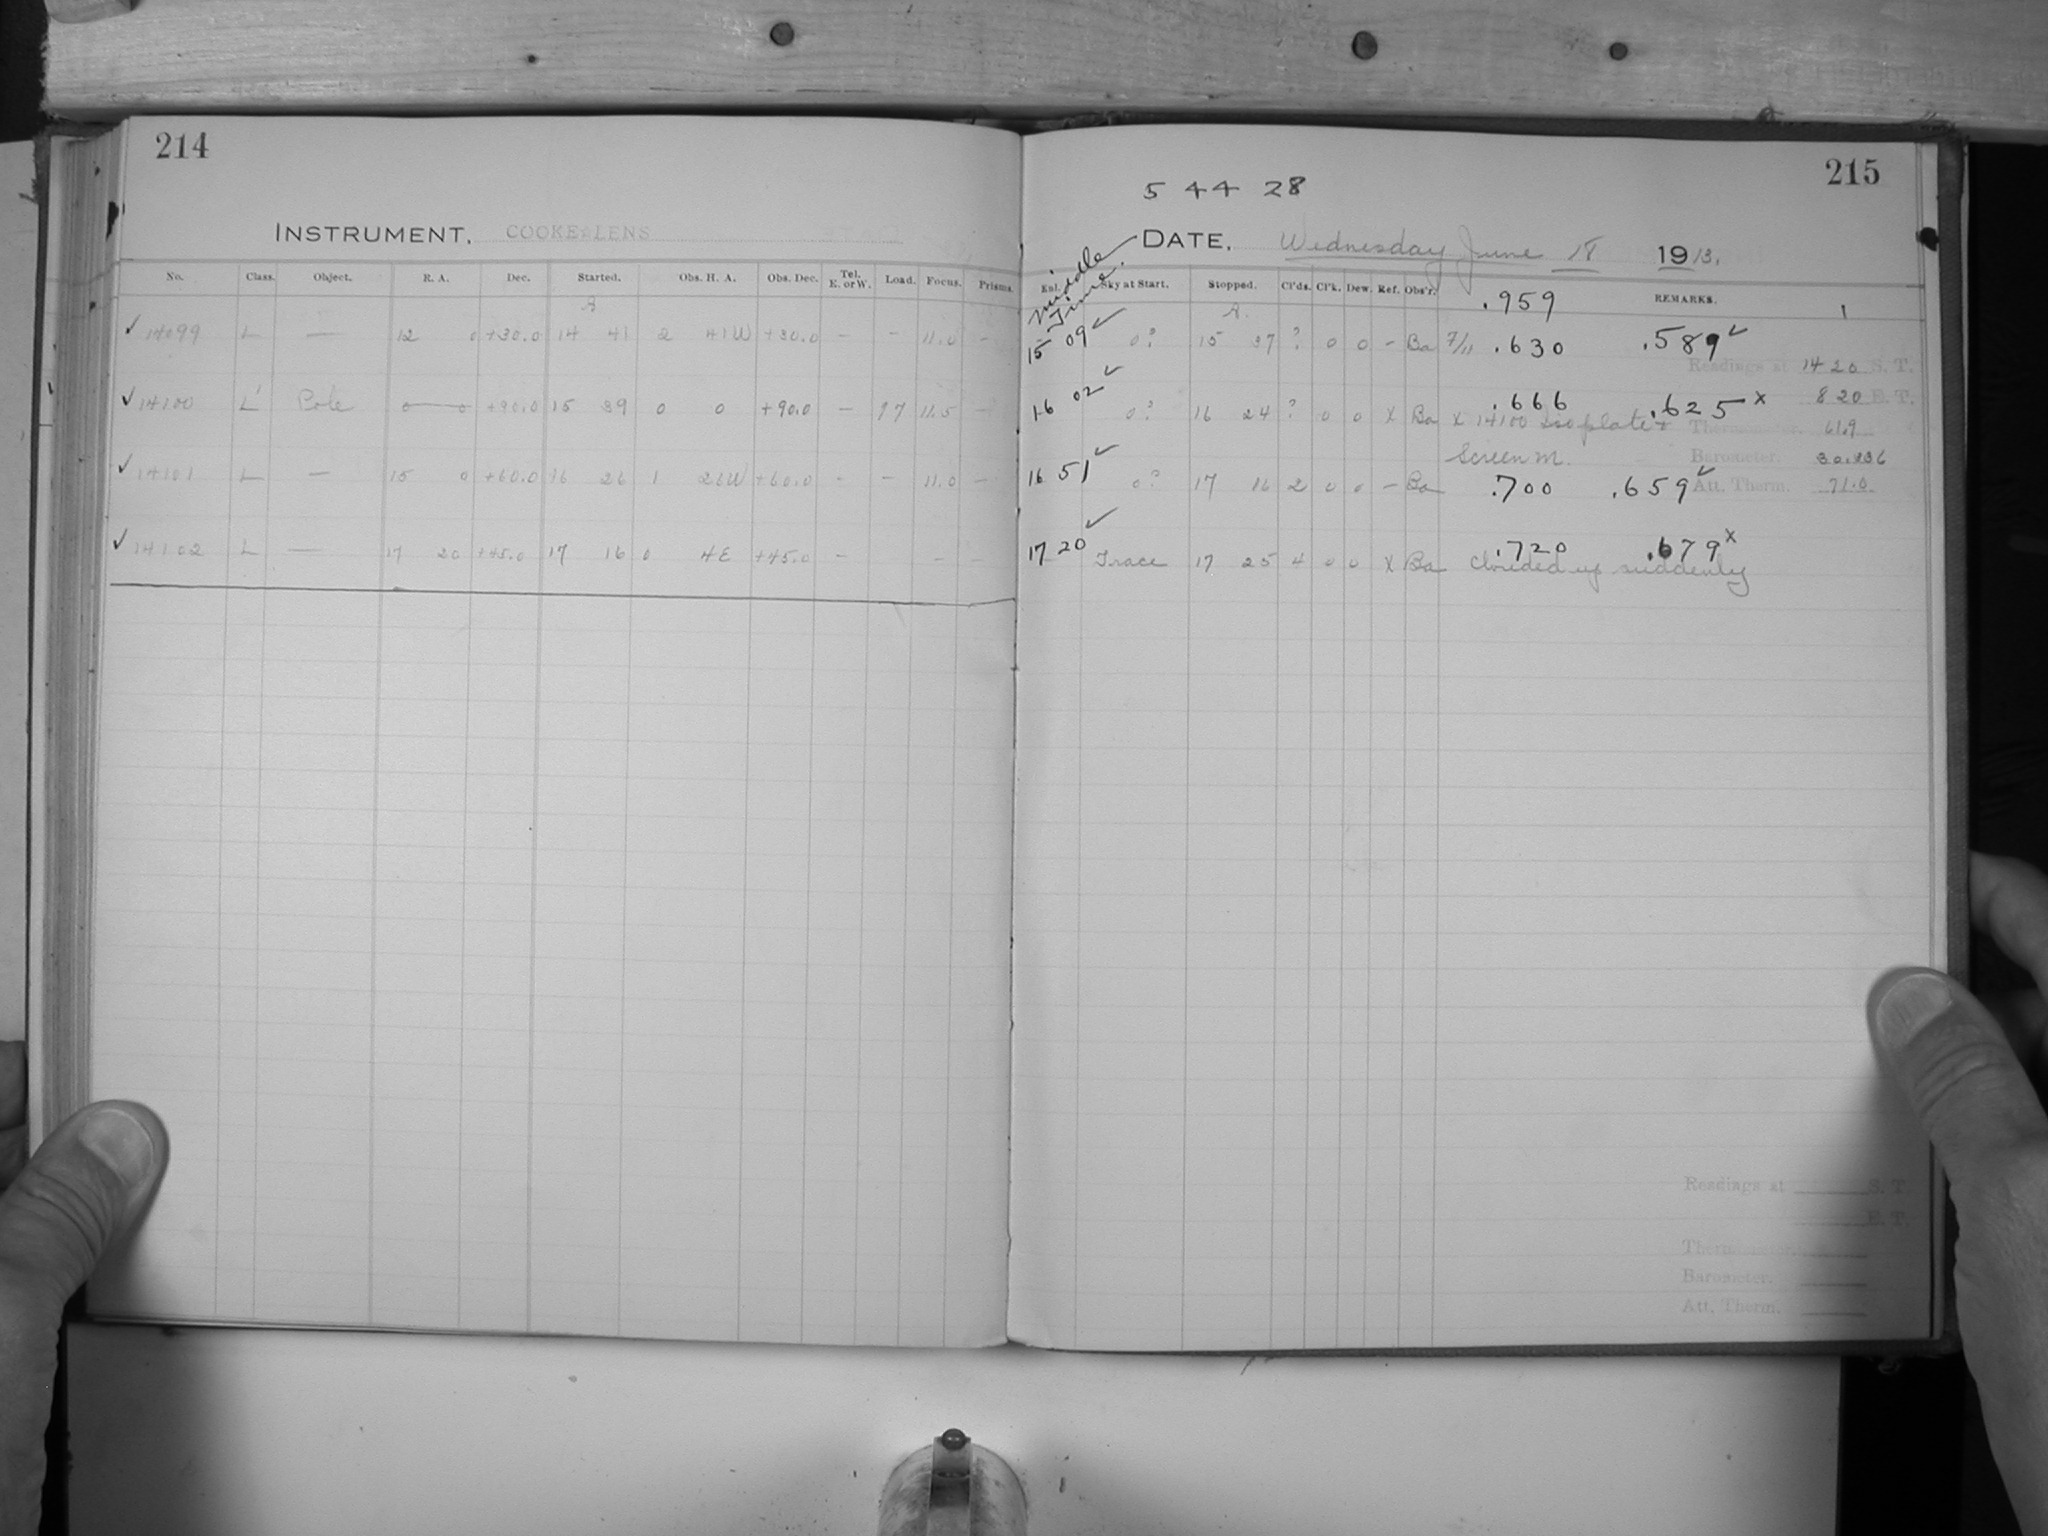 214
INSTRUMENT, COOKE LENS
No. Class. Object. R. A. Dec. Started. Obs. H. A. Obs. Dec. Tel. E. or W. Load. Focus. Prisms.
✓ 14099 L — 12 0 +30.0 14 41 2 41W +30.0 – – 11.0 –
✓ 14100 L' Pole 0 0 +90.0 15 39 0 0 +90.0 – 97 11.5 –
✓ 14101 L — 15 0 +60.0 16 26 1 26W +60.0 – – 11.0 –
✓ 14102 L — 17 20 +45.0 17 16 0 4E +45.0 – – –
215
5 44 28
DATE, Wednesday June 18 1913.
Middle Time.
Enl. Sky at Start. Stopped. Cl'ds. Cl'k. Dew. Ref. Obs'r. REMARKS.
.959 1
15 09 ✓ 0? 15 37 ? 0 0 – Ba 7/11 .630 .589 ✓
Readings at 14 20 S. T.
16 02 ✓ 0? 16 24 ? 0 0 X Ba .666 .625 x 8 20 E. T.
X 14100 Iso plate + Thermometer. 61.9
Screen M. Barometer. 30.236
16 51 ✓ 0? 17 16 2 0 0 – Ba .700 .659 ✓ Att. Therm. 71.0
17 20 ✓ Trace 17 25 4 0 0 X Ba .720 .679 x
Clouded up suddenly
Readings at S. T.
E. T.
Thermometer.
Barometer.
Att. Therm.